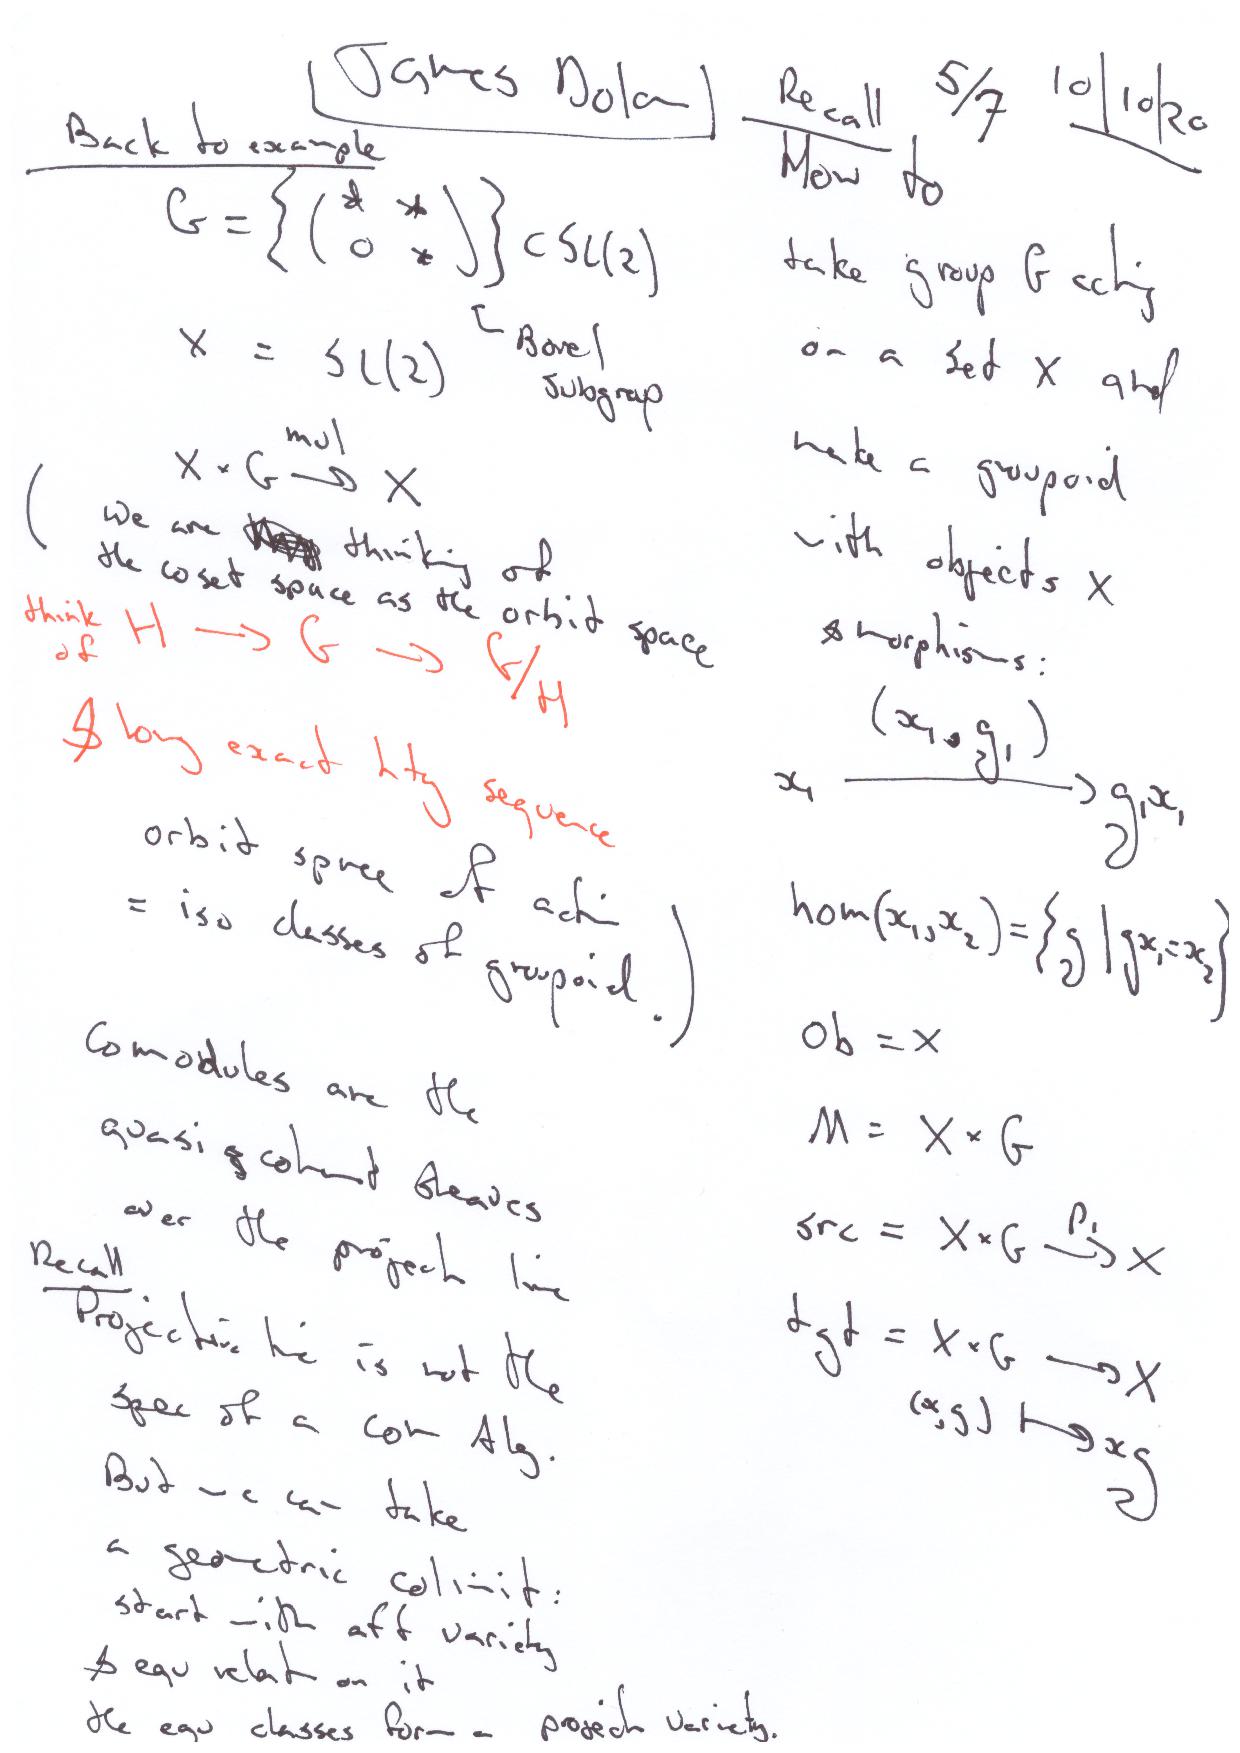 James Dolan
5/7 10/10/20
Back to example
G = {(* * 0 *)} ⊂ SL(2)
Borel
subgroup
X = SL(2)
X × G mul→ X
(We are thinking of
the coset space as the orbit space
think of H → G → G/H
& long exact hty sequence
orbit space of action
= iso classes of groupoid.)
Comodules are the
quasi coherent sheaves
over the project line
Recall
Projective line is not the
spec of a com Alg.
But we can take
a geometric colimit:
start with aff variety
& equ relat on it
the equ classes form a project variety.
Recall
How to
take group G acting
on a set X and
make a groupoid
with objects X
& morphisms:
(x₁, g₁)
x₁ → g₁x₁
hom(x₁, x₂) = {g | gx₁ = x₂}
Ob = X
M = X × G
src = X × G p₁→ X
tgt = X × G → X
(x, g) ↦ xg